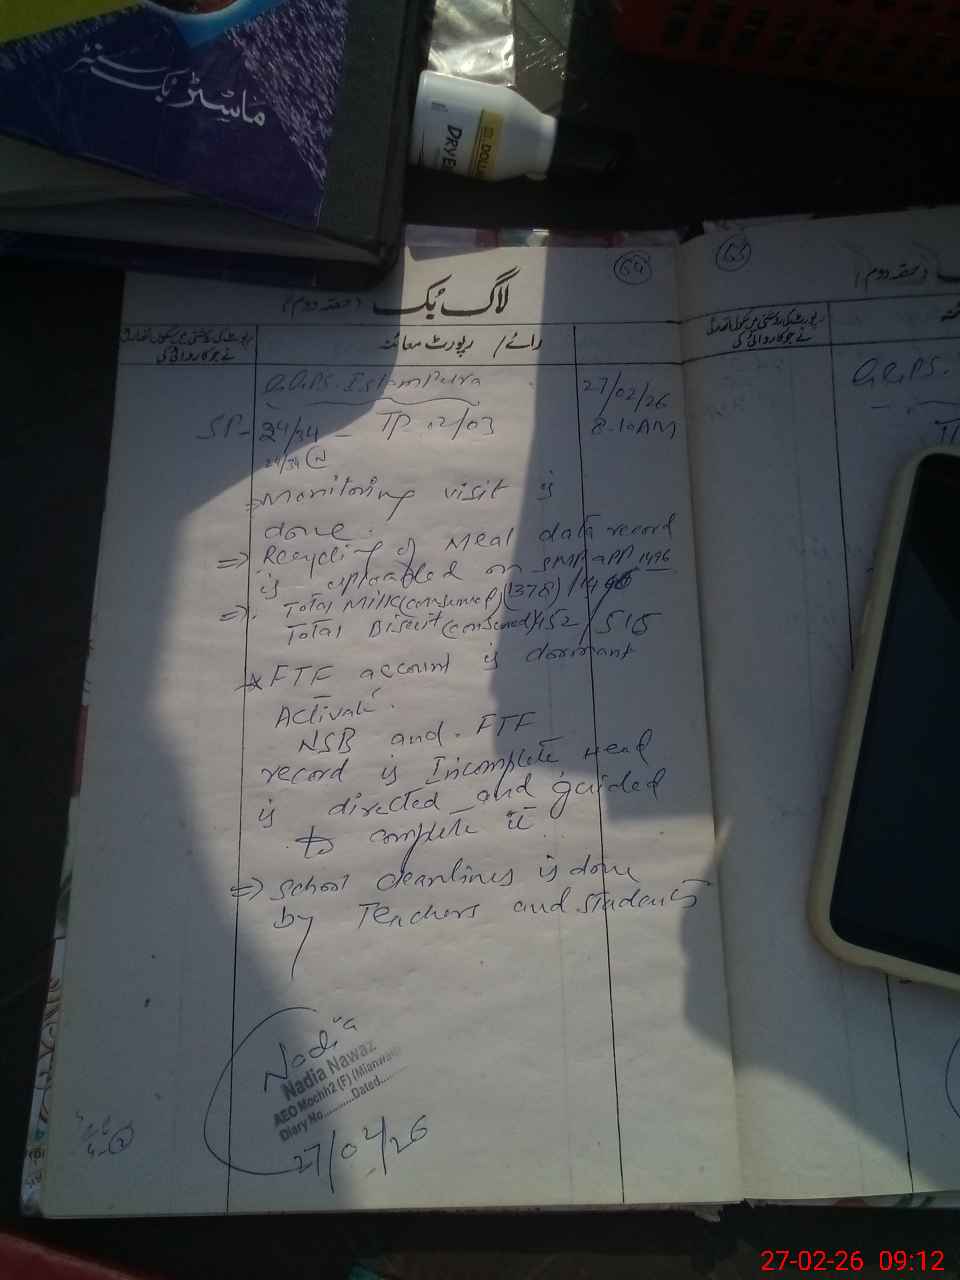 ماسٹر بک سنٹر
DOLL
DRY E
64
63
لاگ بُک (حصہ دوم)
رپورٹ کی روشنی میں سکول انچارج نے جو کاروائی کی
رائے / رپورٹ معائنہ
رپورٹ کی روشنی میں
نے جو کاروائی کی
G.G.P.S. Islampura
27/02/26
8:10AM
SP- 34/34 - TP. 2/03
24/34
⇒ Monitoring visit is
done.
⇒ Recycling of Meal data record
is uploaded on SMP app 1496
⇒ Total Milk (consumed) (1378) /
Total Biscuit (consumed) 452 / 515
* FTF account is dormant
Activate.
NSB and FTF
record is Incomplete Head
is directed and guided
to complete it
⇒ School cleanlines is done
by Teachers and students
G.G.P.S.
Nadia
Nadia Nawaz
AEO Mochh2 (F) (Mianwali)
Diary No..........Dated..........
27/02/26
27-02-26 09:12